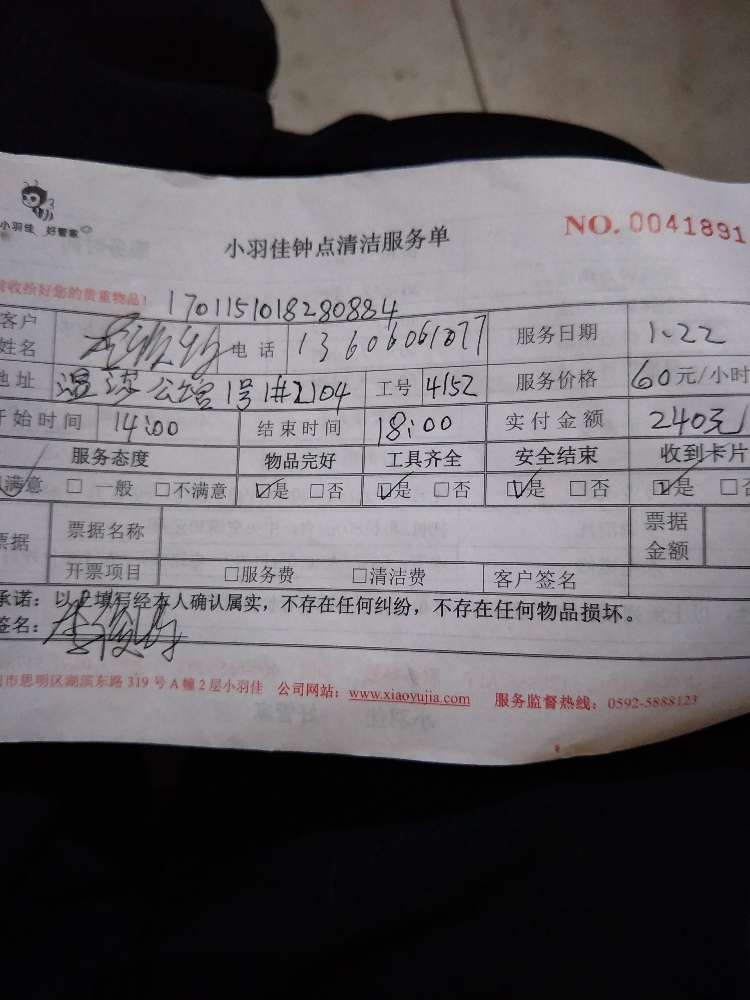 小羽佳 好管家
小羽佳钟点清洁服务单
NO. 0041891
收拾好您的贵重物品!
1701151018280884
客户姓名 电话 13606061077 服务日期 1.22
地址 公馆1号1#2104 工号 4152 服务价格 60元/小时
开始时间 14:00 结束时间 18:00 实付金额 240元
服务态度 物品完好 工具齐全 安全结束 收到卡片
满意 □ 一般 □不满意 ☑是 □否 ☑是 □否 ☑是 □否 ☑是 □否
票据 票据名称 票据金额
开票项目 □服务费 □清洁费 客户签名
承诺：以上填写经本人确认属实，不存在任何纠纷，不存在任何物品损坏。
签名：
市思明区湖滨东路319号A幢2层小羽佳 公司网站：www.xiaoyujia.com 服务监督热线：0592-5888123